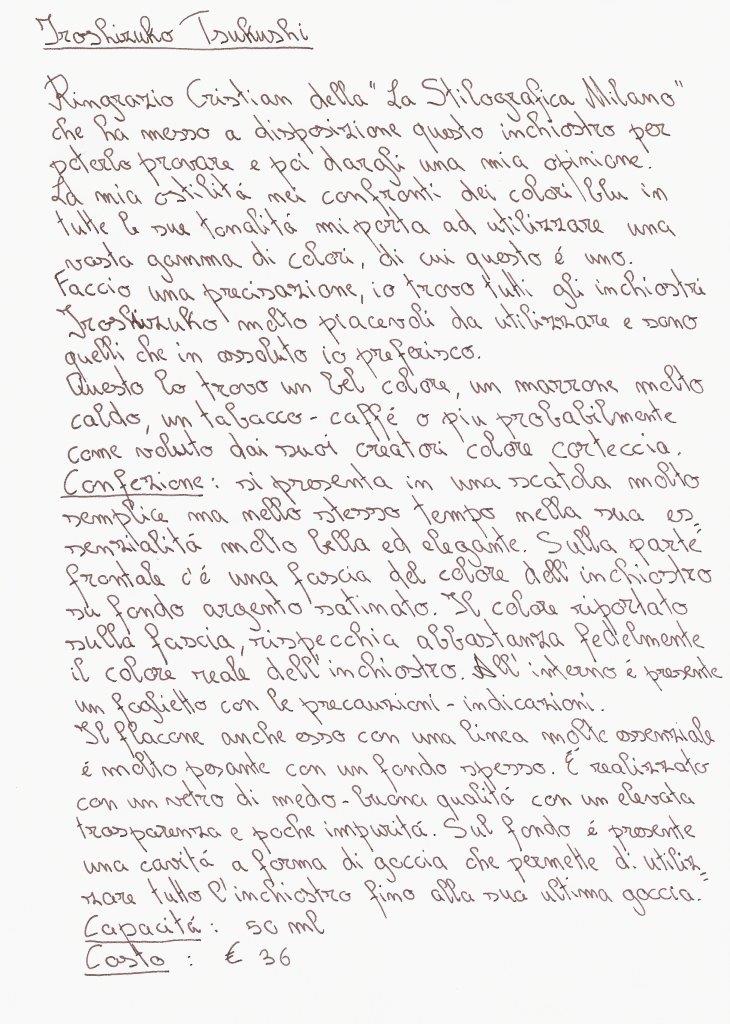 Iroshizuko Tsukushi
Ringrazio Cristian della "La Stilografica Milano"
che ha messo a disposizione questo inchiostro per
poterlo provare e poi dargli una mia opinione.
La mia ostilitá nei confronti dei colori blu in
tutte le sue tonalitá mi porta ad utilizzare una
vasta gamma di colori, di cui questo é uno.
Faccio una precisazione, io trovo tutti gli inchiostri
Iroshizuko molto piacevoli da utilizzare e sono
quelli che in assoluto io preferisco.
Questo lo trovo un bel colore, un marrone molto
caldo, un tabacco-caffé o piu probabilmente
come voluto dai suoi creatori colore corteccia.
Confezione: si presenta in una scatola molto
semplice ma nello stesso tempo nella sua es-
senzialitá molto bella ed elegante. Sulla parte
frontale c'é una fascia del colore dell'inchiostro
su fondo argento satinato. Il colore riportato
sulla fascia, rispecchia abbastanza fedelmente
il colore reale dell'inchiostro. All'interno é presente
un foglietto con le precauzioni-indicazioni.
Il flacone anche esso con una linea molto essenziale
é molto pesante con un fondo spesso. É realizzato
con un vetro di medo-buona qualitá con un elevata
trasparenza e poche impuritá. Sul fondo é presente
una cavitá a forma di goccia che permette di utiliz-
zare tutto l'inchiostro fino alla sua ultima goccia.
Capacitá: 50 ml
Costo: € 36